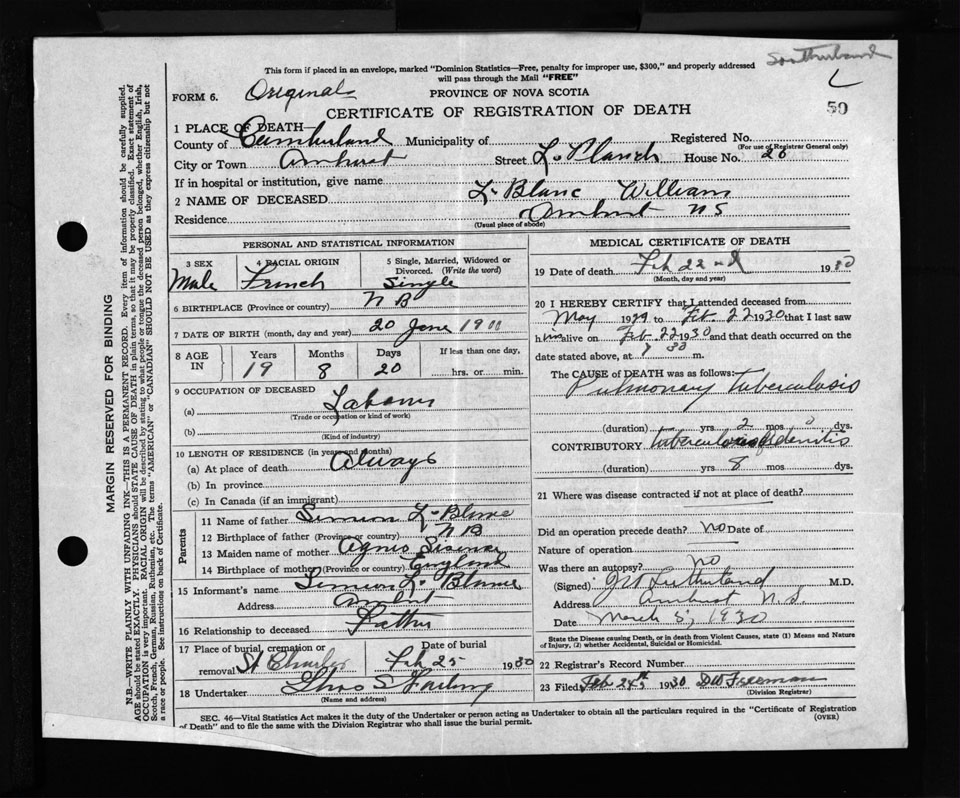 Southerland
This form if placed in an envelope, marked "Dominion Statistics—Free, penalty for improper use, $300," and properly addressed
will pass through the Mail "FREE"
L
FORM 6. Original
PROVINCE OF NOVA SCOTIA
CERTIFICATE OF REGISTRATION OF DEATH
50
1 PLACE OF DEATH—
County of Cumberland Municipality of Registered No.
(For use of Registrar General only)
City or Town Amherst Street La Planch House No. 26
If in hospital or institution, give name
2 NAME OF DECEASED Le Blanc William
Residence Amherst NS
(Usual place of abode)
PERSONAL AND STATISTICAL INFORMATION
3 SEX Male
4 RACIAL ORIGIN French
5 Single, Married, Widowed or Divorced. (Write the word) Single
6 BIRTHPLACE (Province or country) N B
7 DATE OF BIRTH (month, day and year) 20 June 19
8 AGE IN Years 19 Months 8 Days 20 If less than one day, hrs. or min.
9 OCCUPATION OF DECEASED
(a) Laborer
(Trade or occupation or kind of work)
(b)
(Kind of industry)
10 LENGTH OF RESIDENCE (in years and months)
(a) At place of death Always
(b) In province
(c) In Canada (if an immigrant)
Parents
11 Name of father Simon Le Blanc
12 Birthplace of father (Province or country) N B
13 Maiden name of mother Agnes
14 Birthplace of mother (Province or country) England
15 Informant's name Simon Le Blanc
Address Amherst
16 Relationship to deceased Father
17 Place of burial, cremation or removal St Charles Date of burial Feb 25 1930
18 Undertaker Thos S
(Name and address)
MEDICAL CERTIFICATE OF DEATH
19 Date of death Feb 22nd 1930
(Month, day and year)
20 I HEREBY CERTIFY that I attended deceased from
May 1929 to Feb 22 1930 that I last saw
him alive on Feb 22 1930 and that death occurred on the
date stated above, at m.
The CAUSE of DEATH was as follows:
Pulmonary tuberculosis
(duration) yrs 2 mos dys.
CONTRIBUTORY tuberculous adenitis
(duration) yrs 8 mos dys.
21 Where was disease contracted if not at place of death?
Did an operation precede death? no Date of
Nature of operation
Was there an autopsy? no
(Signed) M.D.
Address Amherst N.S.
Date March 3, 1930
State the Disease causing Death, or in death from Violent Causes, state (1) Means and Nature
of Injury, (2) whether Accidental, Suicidal or Homicidal.
22 Registrar's Record Number
23 Filed Feb 1930 D W Freeman
(Division Registrar)
SEC. 46—Vital Statistics Act makes it the duty of the Undertaker or person acting as Undertaker to obtain all the particulars required in the "Certificate of Registration
of Death" and to file the same with the Division Registrar who shall issue the burial permit.
(OVER)
MARGIN RESERVED FOR BINDING
N.B.—WRITE PLAINLY WITH UNFADING INK—THIS IS A PERMANENT RECORD. Every item of information should be carefully supplied.
AGE should be stated EXACTLY. PHYSICIANS should STATE CAUSE OF DEATH in plain terms, so that it may be properly classified. Exact statement of
OCCUPATION is very important. RACIAL ORIGIN will be described by stating to what people or tongue the deceased person belonged, whether English, Irish,
Scotch, French, German, Russian, Ruthenian, etc. The terms "AMERICAN" or "CANADIAN" SHOULD NOT BE USED as they express citizenship but not
a race or people. See instructions on back of Certificate.